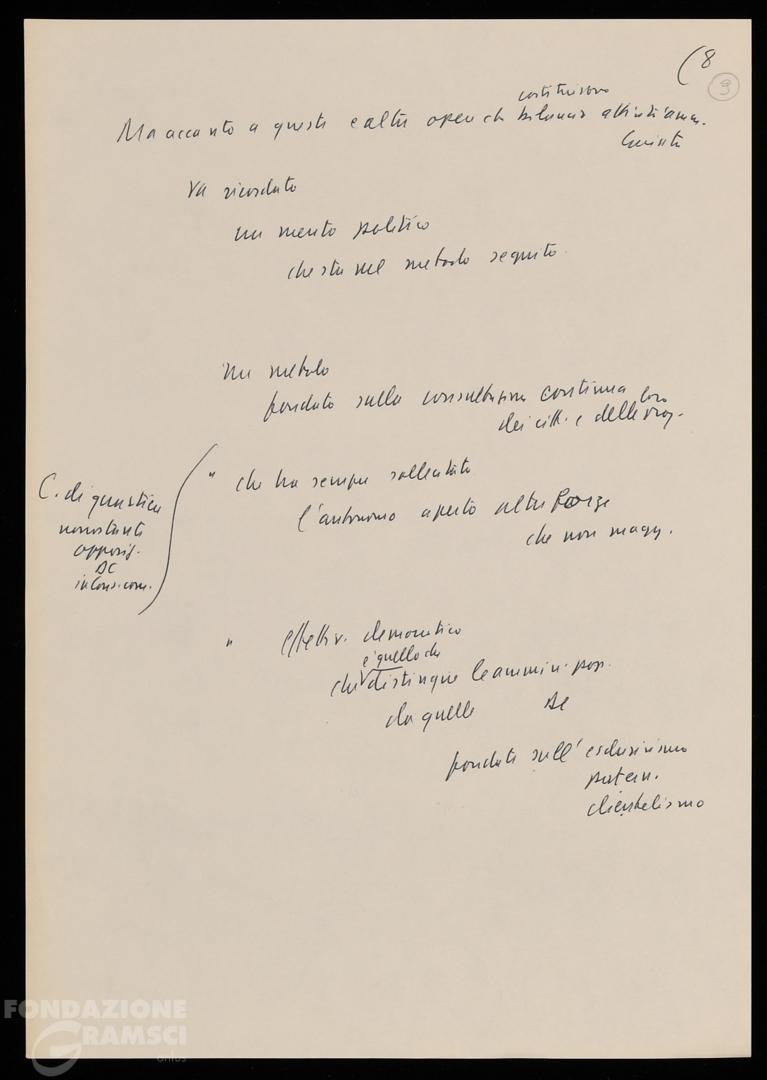 (8
9
costituiscono
Ma accanto a queste e altre opere ch bilancio attivo di amm.
va ricordato
un merito politico
che sta nel metodo seguito.
un metodo
fondato sulla consultazione continua
dei citt. e delle loro org.
" che ha sempre sollecitato
l'autonomo aperto altre forze
che non magg.
C. di quartiere
nonostante
opposiz.
DC
in Cons. com.
" effettiv. democratico
è quello che
che distingue le ammin. pop.
da quelle DC
fondate sull'esclusivismo
patern.
clientelismo
FONDAZIONE
GRAMSCI
onlus